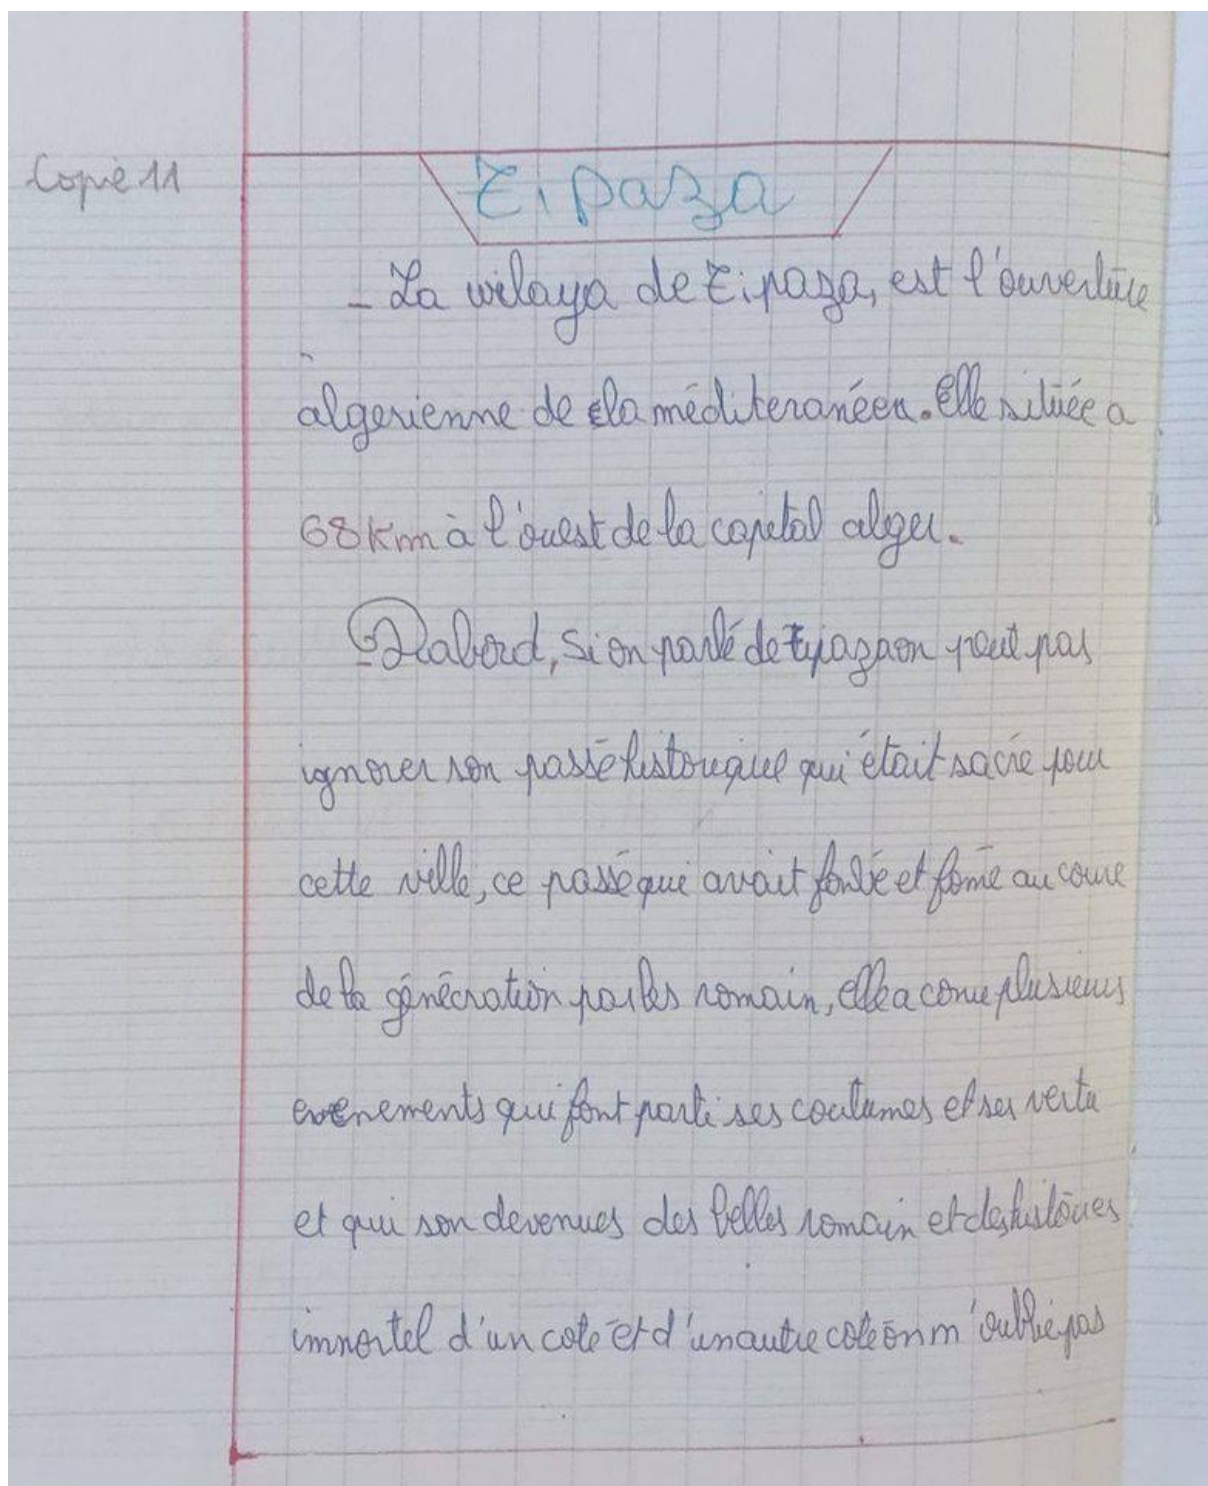 Copie 11
Tipaza
- La wilaya de Tipaza, est l'ouverture
algerienne de la méditeranéen. Elle située a
68 Km à l'ouest de la capital alger.
- Dabord, Si on parlé de tipaza on peut pas
ignorer son passé historique qui était sacré pour
cette ville, ce passé qui avait fondé et formé au coure
de la génération par les romain, elle a conue plusieurs
evenements qui font parti ses coutumes et ses vertu
et qui son devenues des belles romain et des histoires
immortel d'un coté et d'un autre coté on m'oublié pas